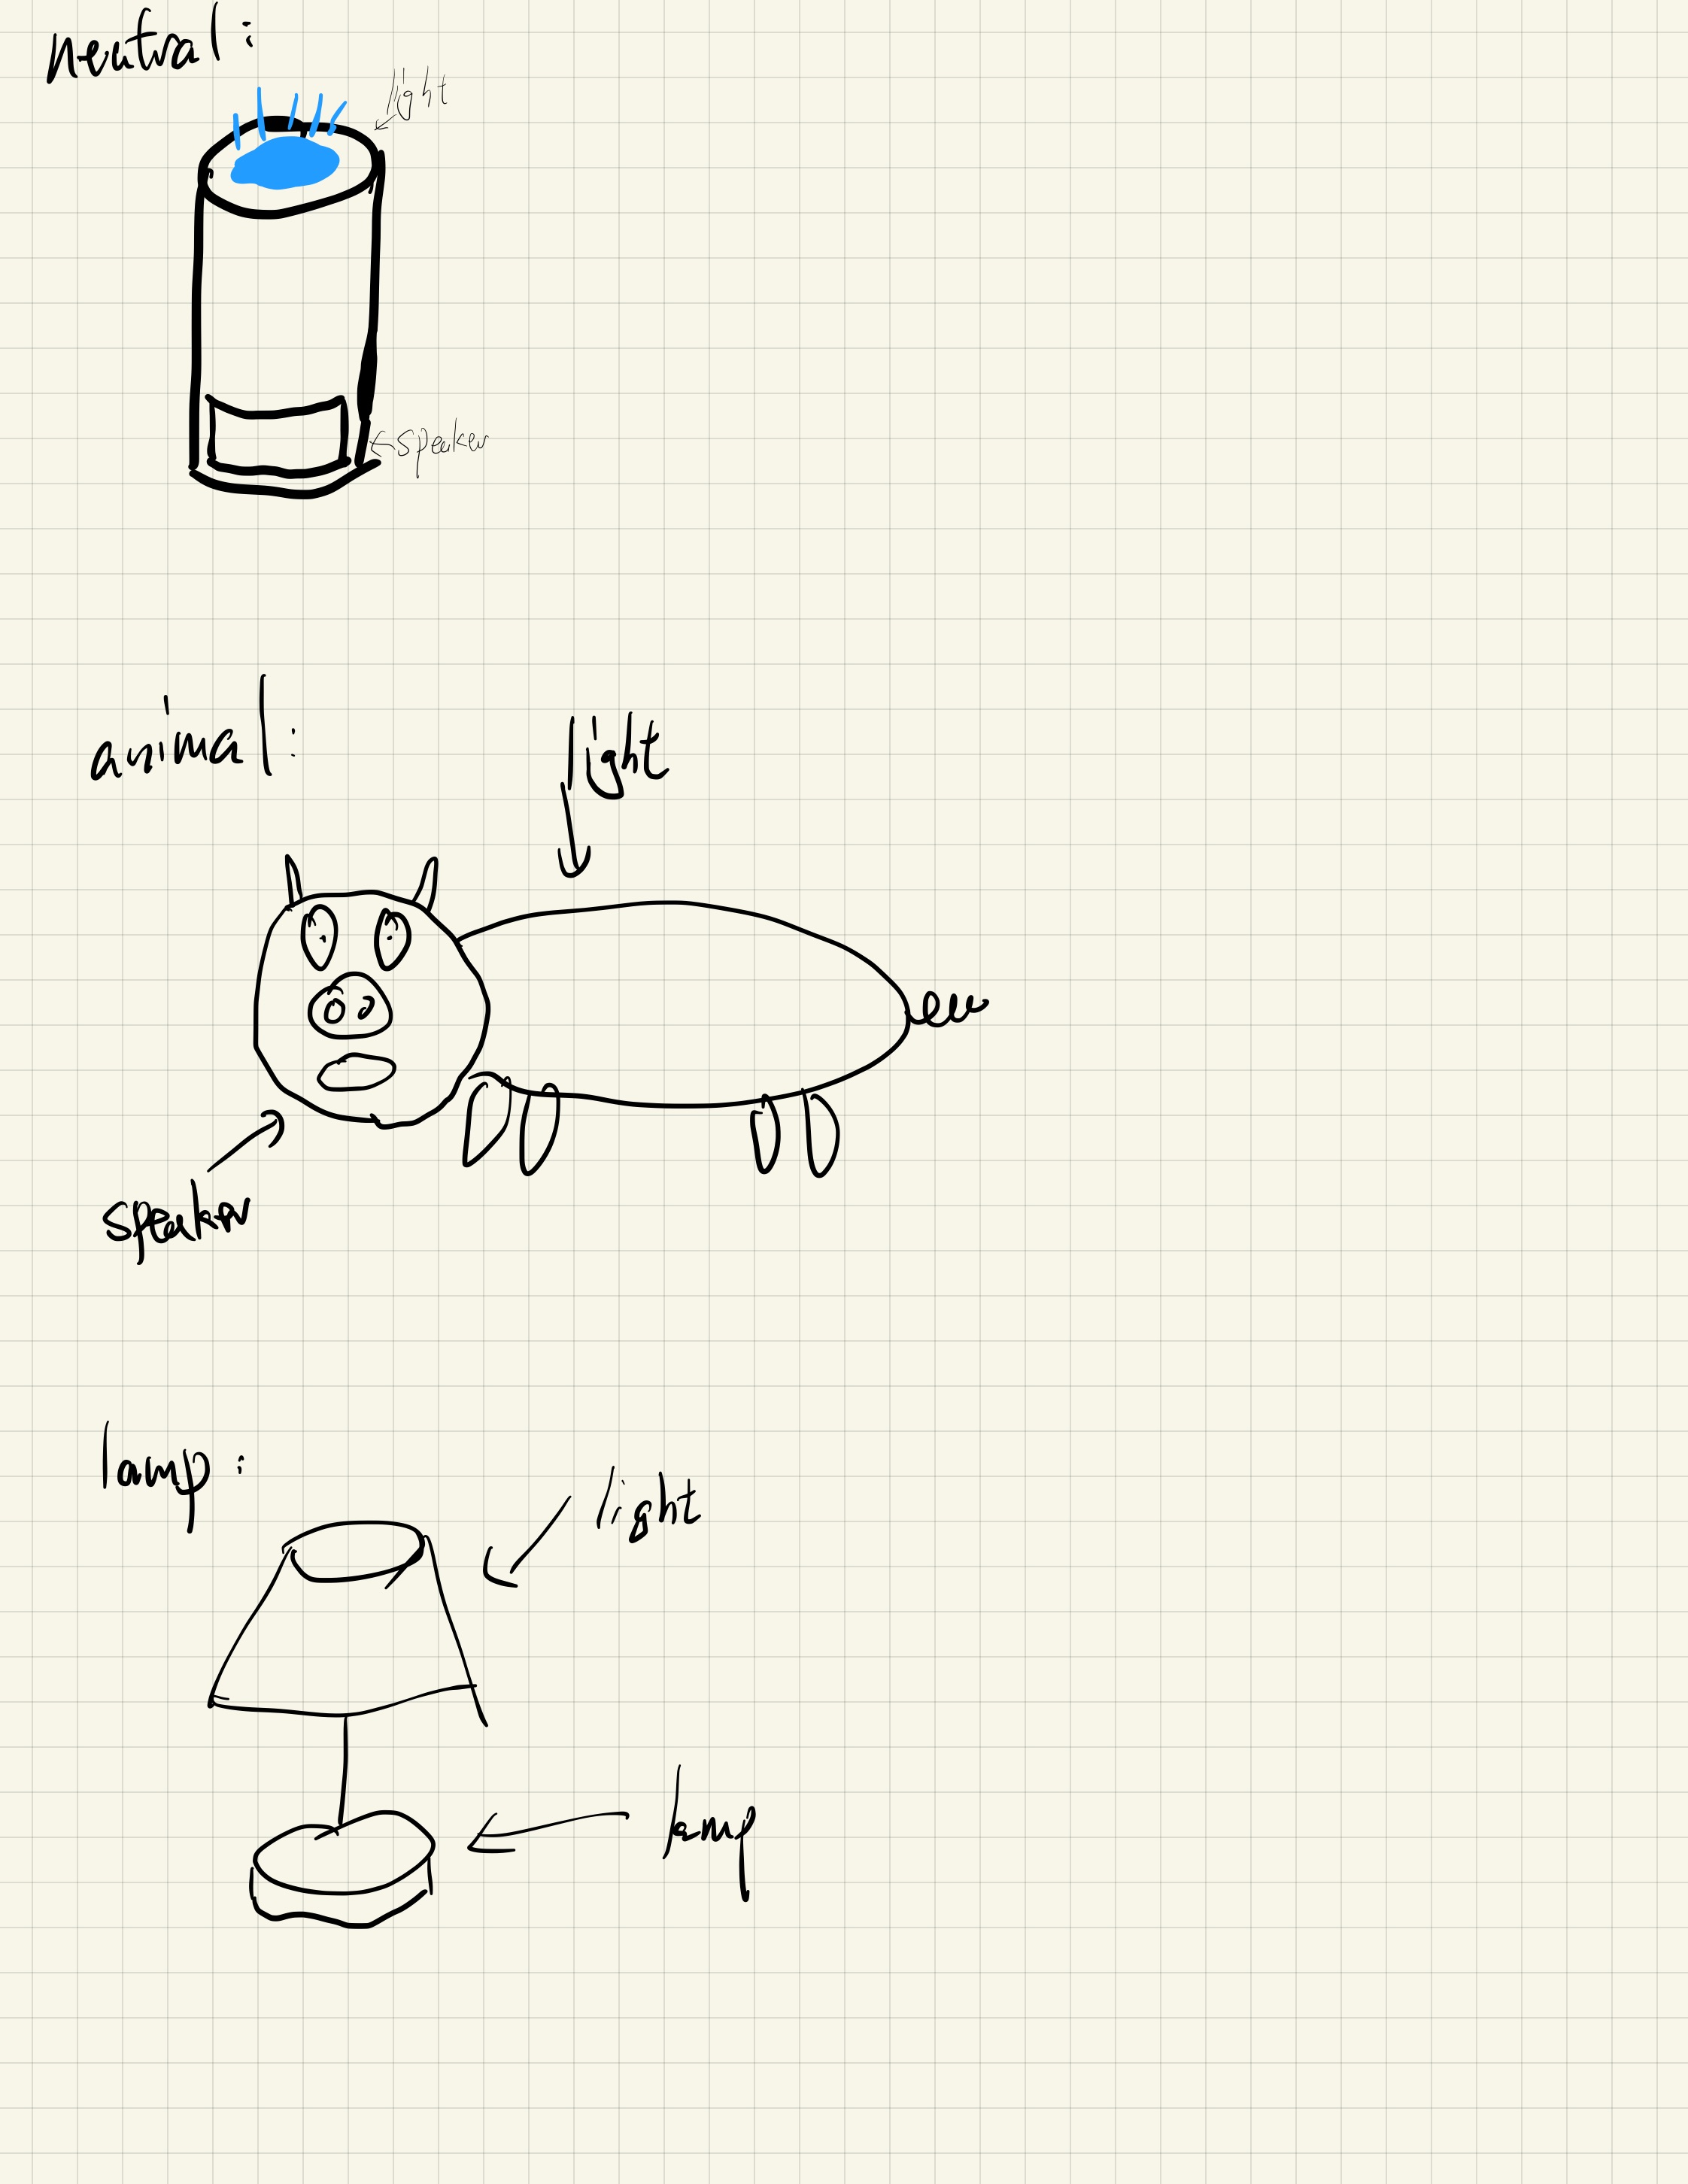 neutral:
light
speaker
animal:
light
speaker
lamp:
light
lamp